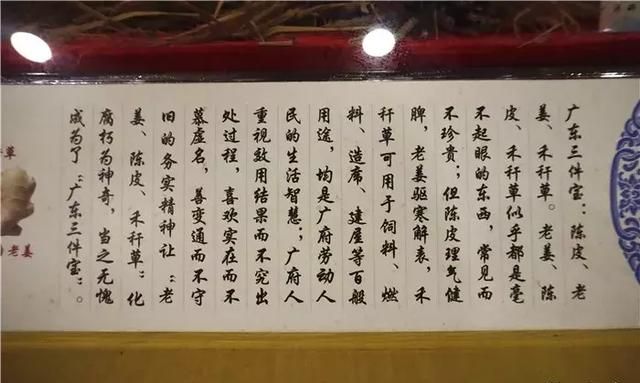 广东三件宝：陈皮、老
姜、禾秆草。老姜、陈
皮、禾秆草似乎都是毫
不起眼的东西，常见而
不珍贵；但陈皮理气健
脾，老姜驱寒解表，禾
秆草可用于饲料、燃
料、造席、建屋等百般
用途，均是广府劳动人
民的生活智慧；广府人
重视效用结果而不究出
处过程，喜欢实在而不
慕虚名，善变通而不守
旧的务实精神让“老
姜、陈皮、禾秆草”化
腐朽为神奇，当之无愧
成为了“广东三件宝”。
草
老姜